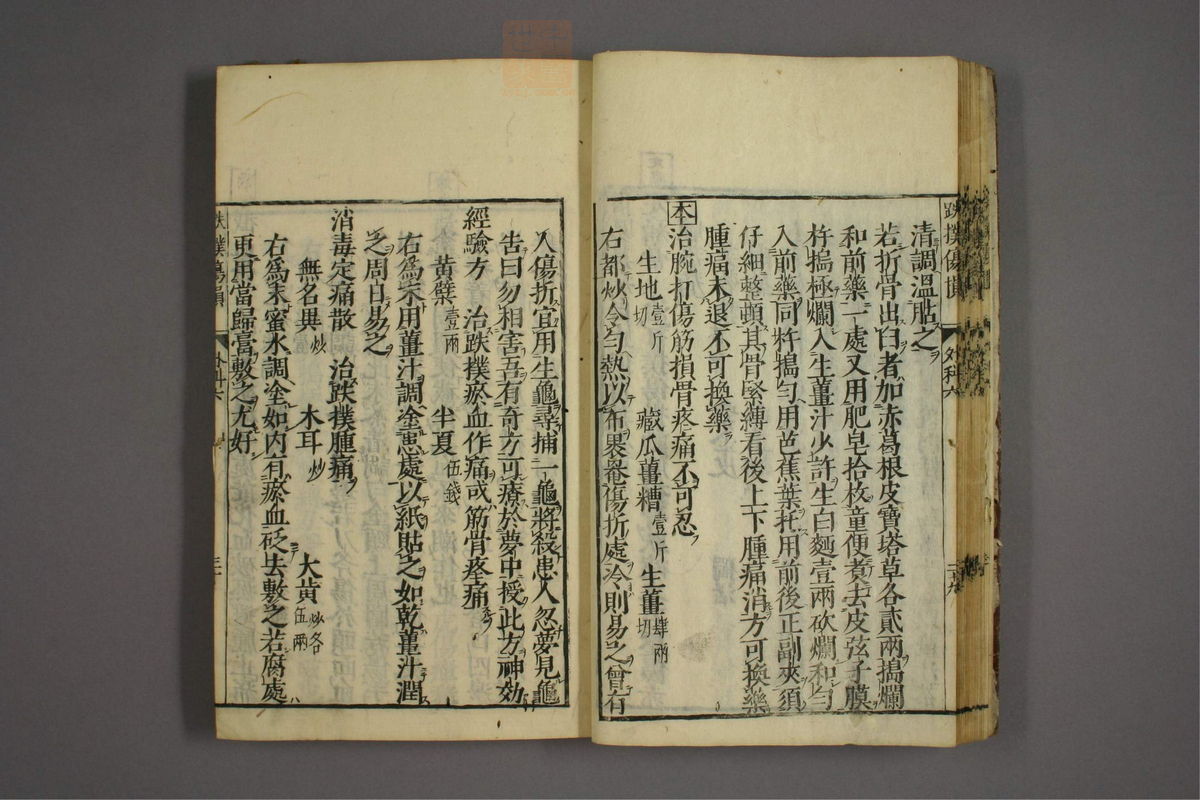 跌撲傷損 外科六
清調溫貼之
若折骨出臼者加赤葛根皮寶塔草各貳兩搗爛
和前藥一處又用肥皂拾枚童便煑去皮弦子膜
杵搗極爛入生薑汁少許生白麵壹兩砍爛和勻
入前藥同杵搗勻用芭蕉葉托用前後正副夾須
仔細整頓其骨緊縛看後上下腫痛消方可換藥
腫痛未退不可換藥
本 治腕打傷筋損骨疼痛不可忍
生地切壹斤 藏瓜薑糟壹斤 生薑切肆兩
右都炒令勻熱以布裹罨傷折處冷則易之曾有
人傷折宜用生龜尋捕一龜將殺患人忽夢見龜
告曰勿相害吾有奇方可療於夢中授此方神効
經驗方 治跌撲瘀血作痛或筋骨疼痛
黃蘗壹兩 半夏伍錢
右為末用薑汁調塗患處以紙貼之如乾薑汁潤
之周日易之
消毒定痛散 治跌撲腫痛
無名異炒 木耳炒 大黃炒各伍兩
右為末蜜水調塗如内有瘀血砭去敷之若腐處
更用當歸膏敷之尤好